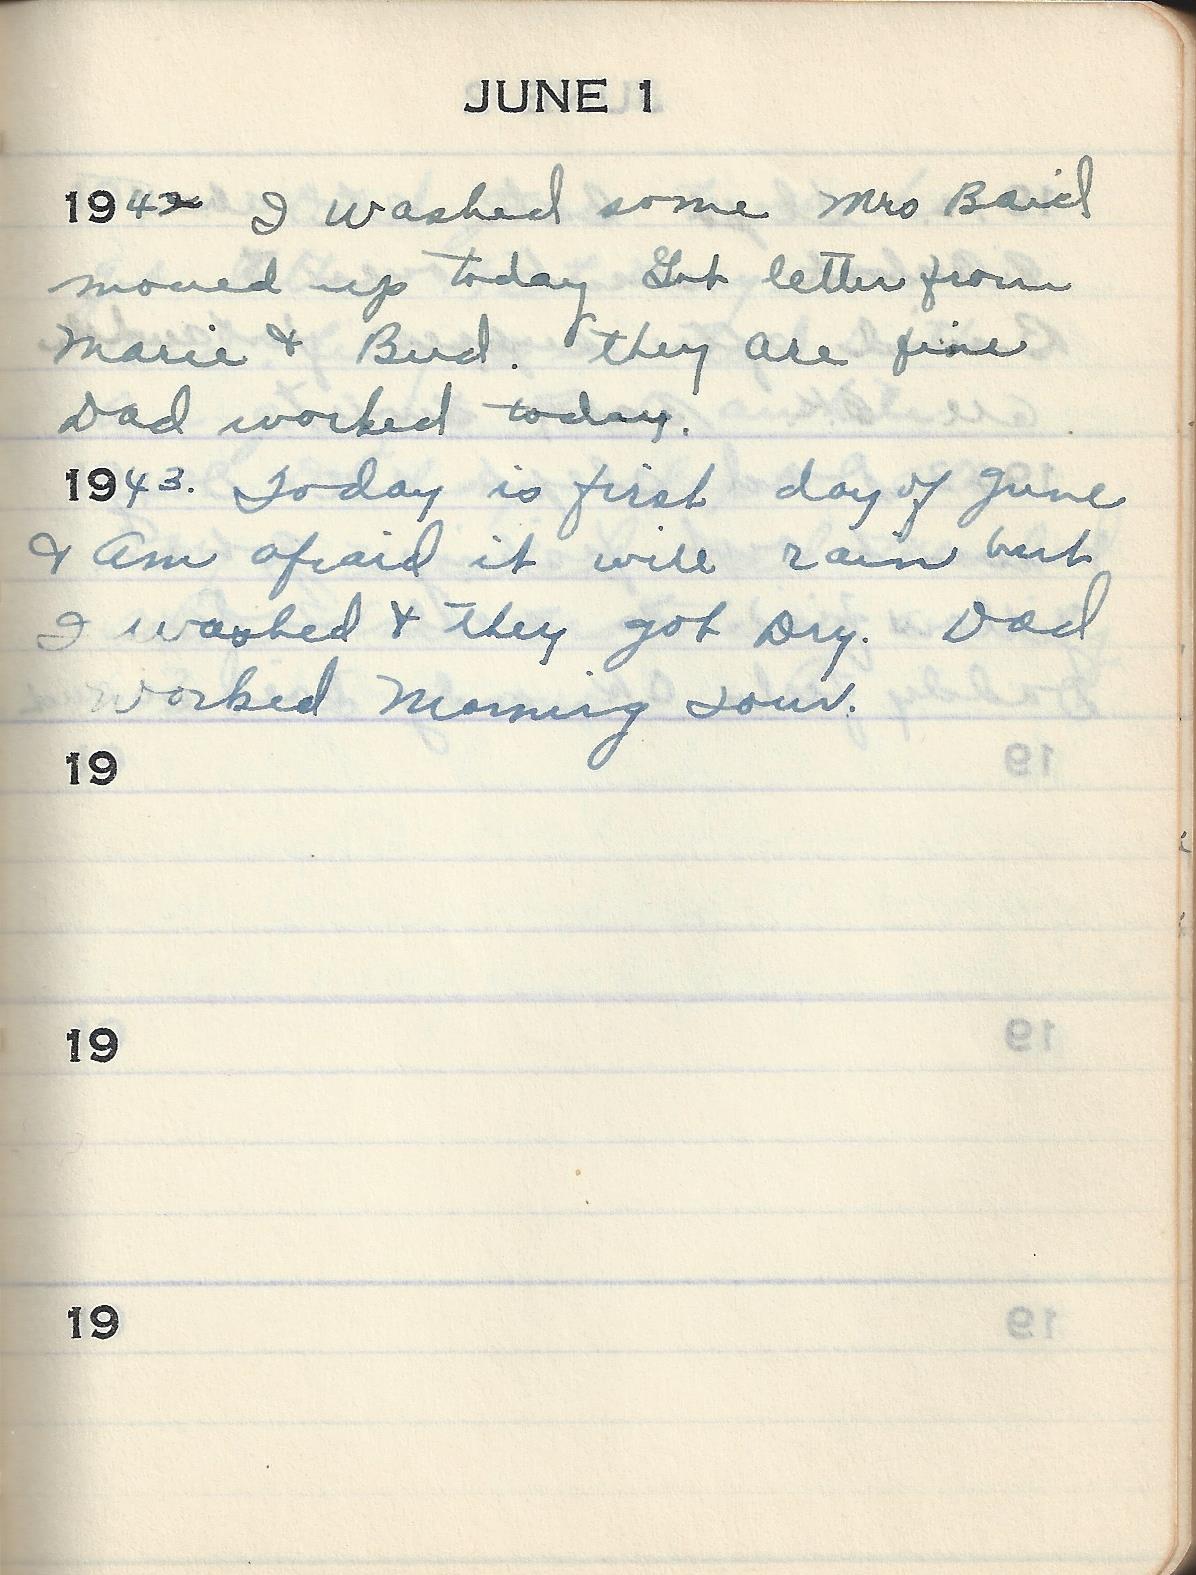 JUNE 1
1942 I washed some Mrs Baird
moved up today Got letter from
Marie & Bud. they are fine
Dad worked today.
1943. Today is first day of June
& Am afraid it will rain but
I washed & they got Dry. Dad
worked Morning Tour.
19
19
19